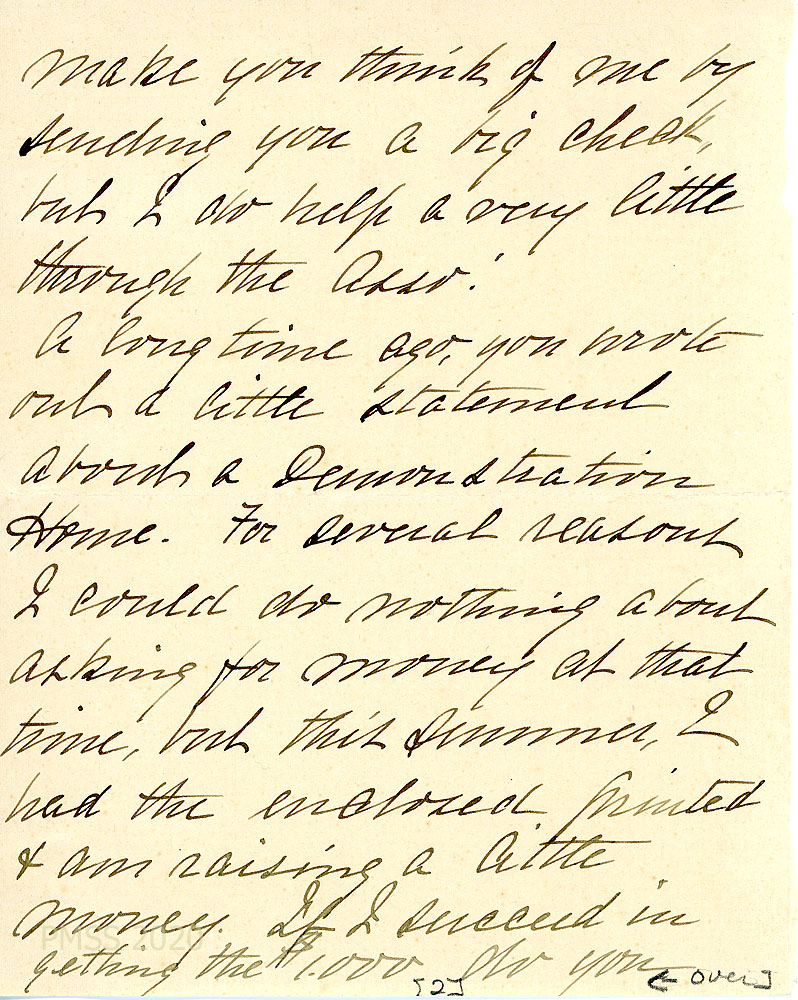 make you think of me by
sending you a big check,
but I do help a very little
through the Asso'.
A long time ago, you wrote
out a little statement
about a Demonstration
Home. For several reasons
I could do nothing about
asking for money at that
time, but this summer, I
had the enclosed printed
& am raising a little
money. If I succeed in
getting the $1.000 do you
[2] [← over]
PMSS 2020